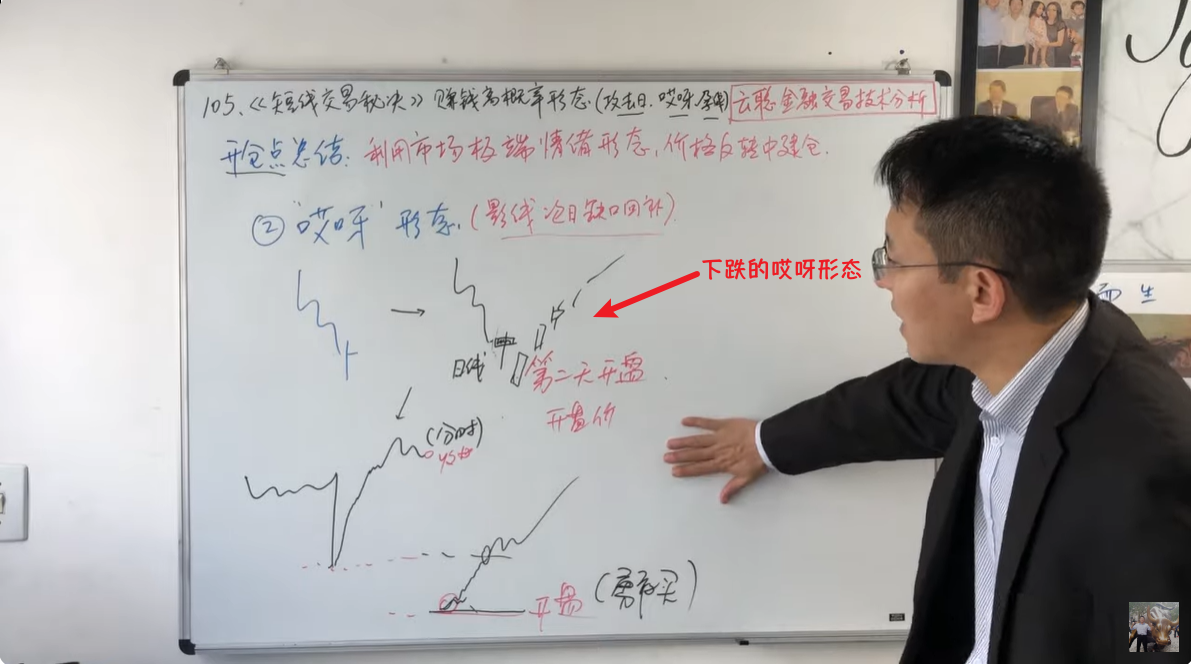 105.《短线交易秘决》赚钱高概率形态(攻击日.哎呀.孕线) 云聪金融交易技术分析
开仓点总结: 利用市场极端情绪形态,价格反转中建仓.
② "哎呀" 形态.(影线次日缺口回补)
下跌的哎呀形态
日线
第二天开盘.
开盘价
(分时)
收盘
开盘
而 生